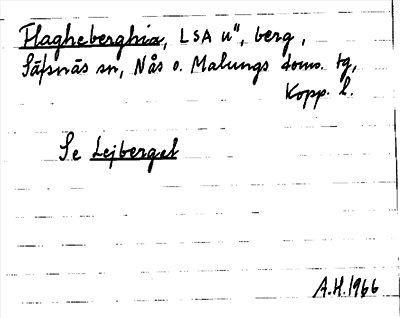 Flagheberghia, LSA u", berg,
Säfsnäs sn, Nås o. Malungs doms. tg,
Kopp. l.
Se Lejberget
A.H. 1966